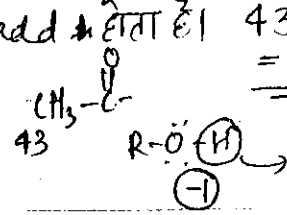 add होता है। 43
O
CH₃-C-
43 R-Ö-H →
-1